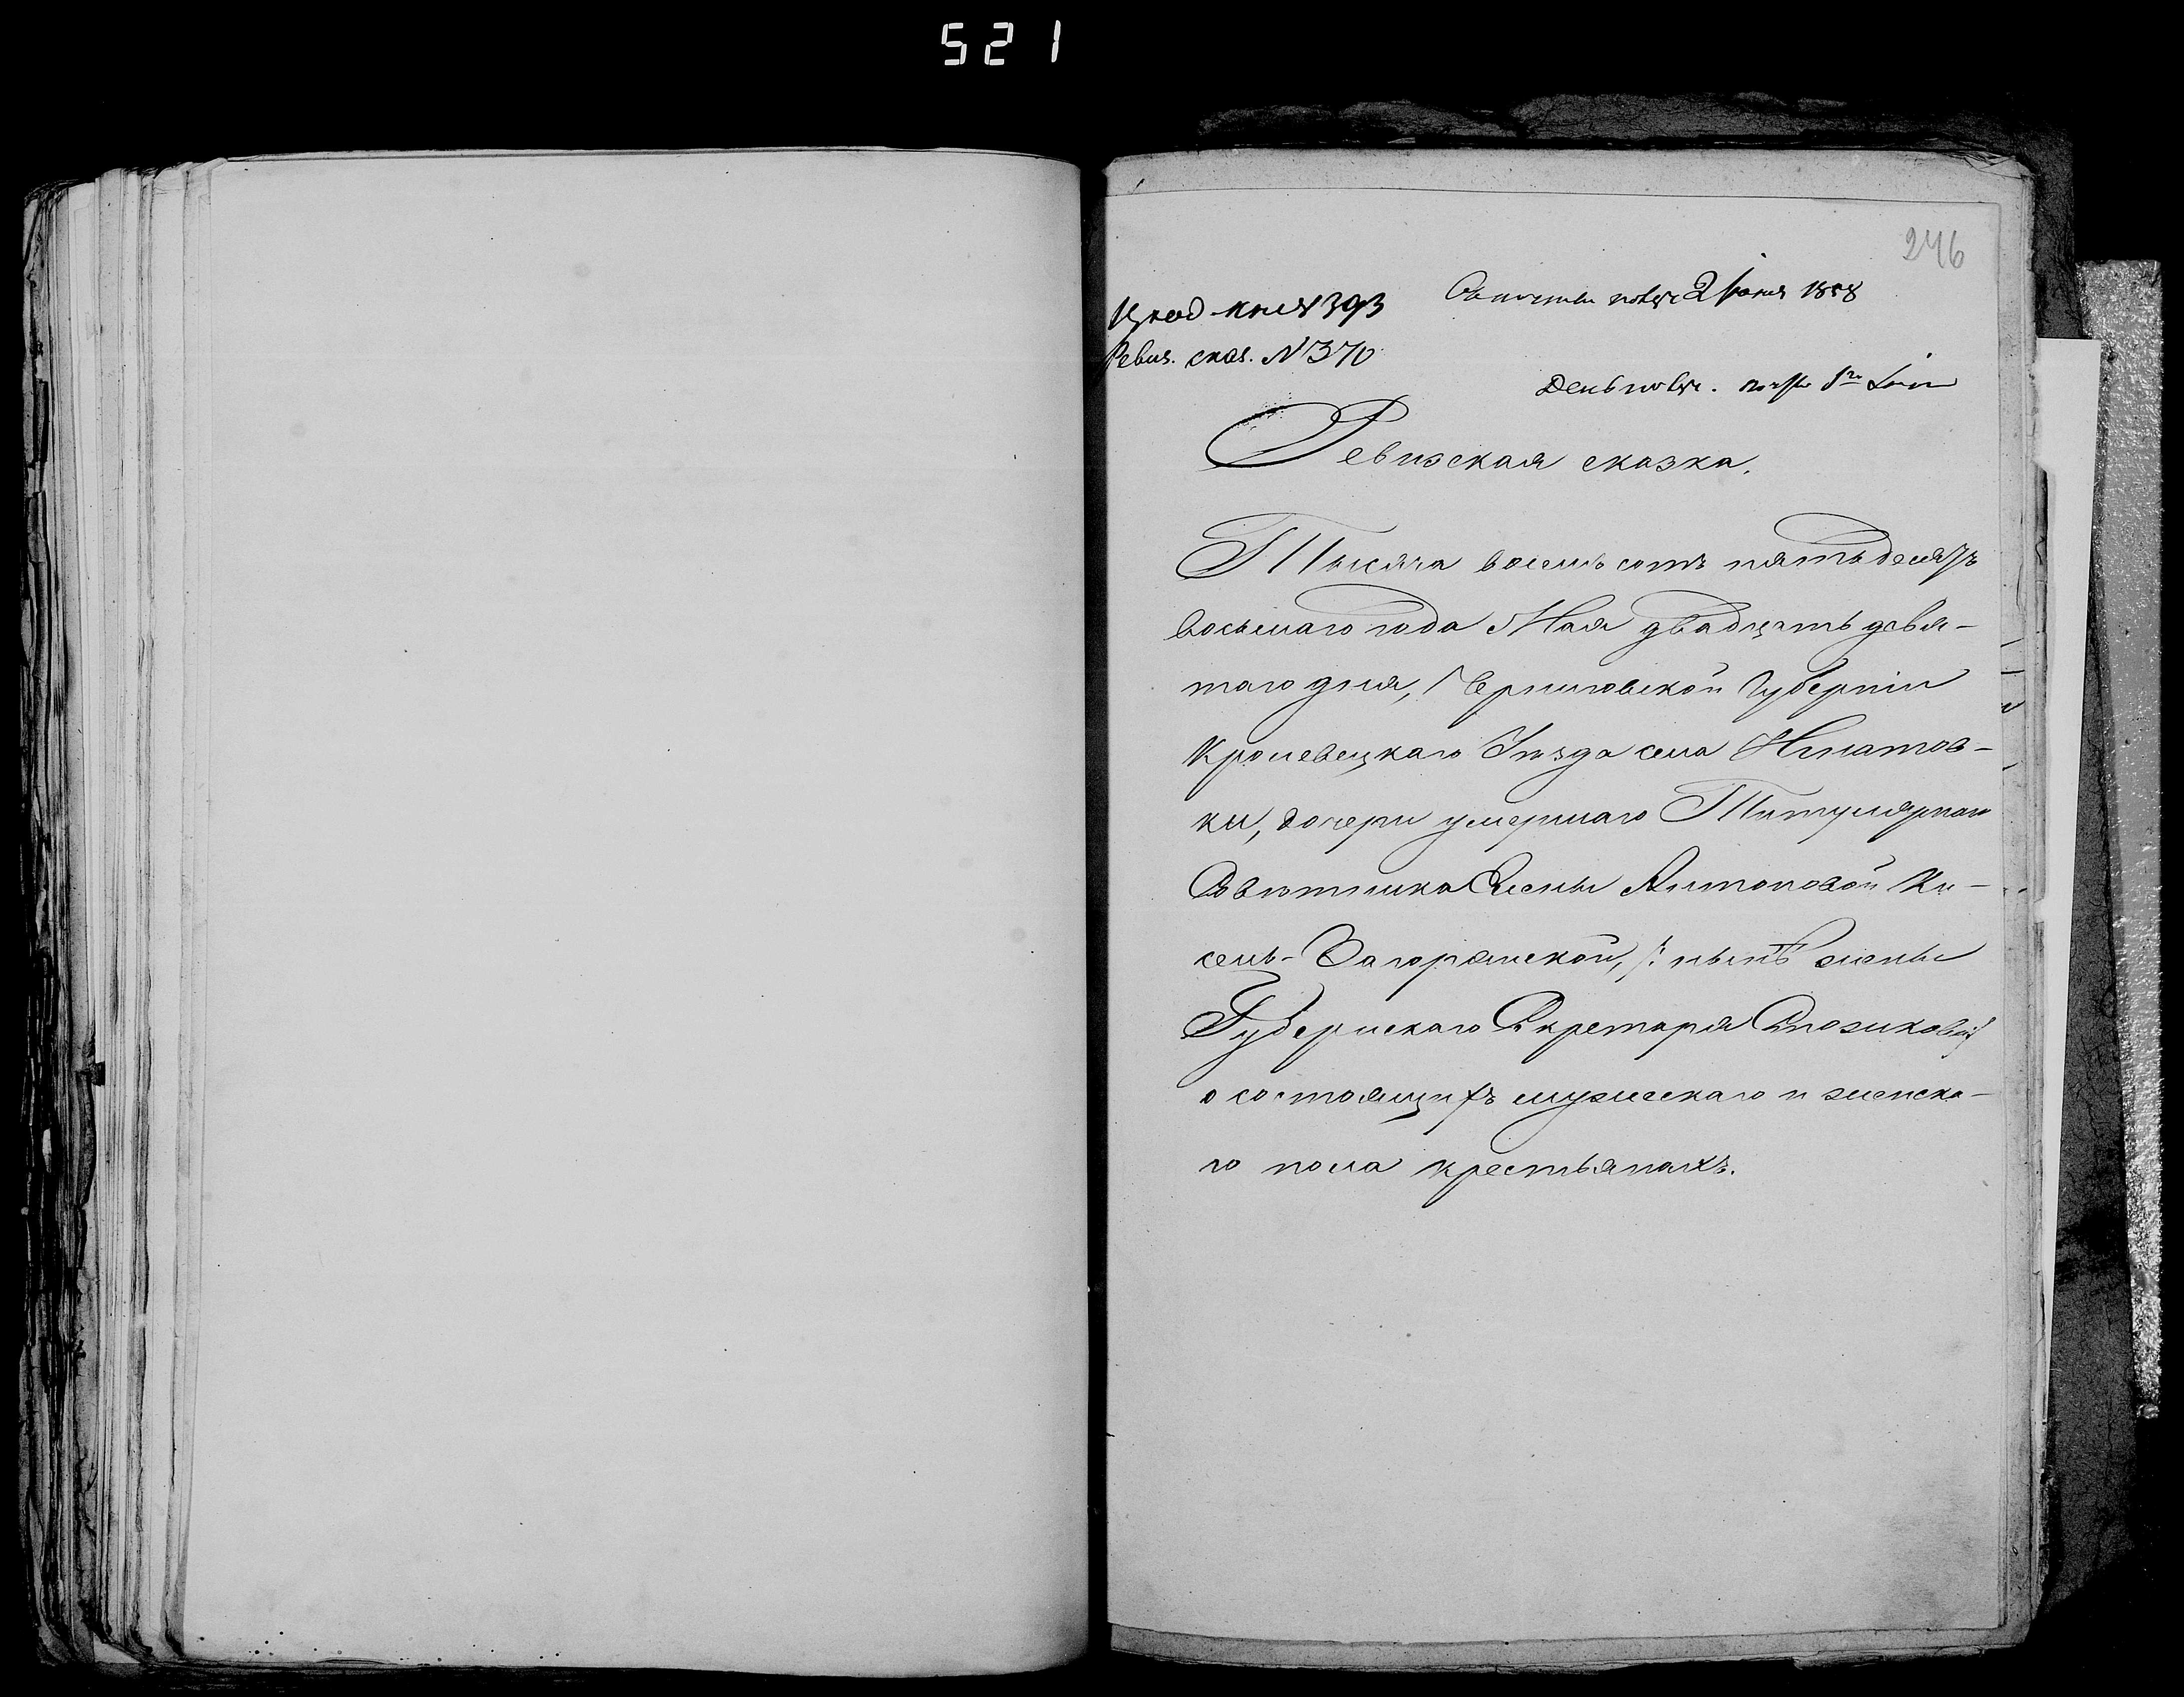 521
246
2 Іюня 1858
393
Ревиз. сказ. № 370
Ревизская сказка.
Тысяча восемь сотъ пятьдесятъ
восьмаго года Мая двадцать девя-
таго дня, Черниговской Губерніи
Кролевецкаго Уѣзда села Игнатов-
ки, дочери умершаго Титулярнаго
Совѣтника Елены Антоновой Ки-
сель-Загорянской, /: нынѣ жены
Губернскаго Секретаря
о состоящихъ мужескаго и женска-
го пола крестьянахъ.